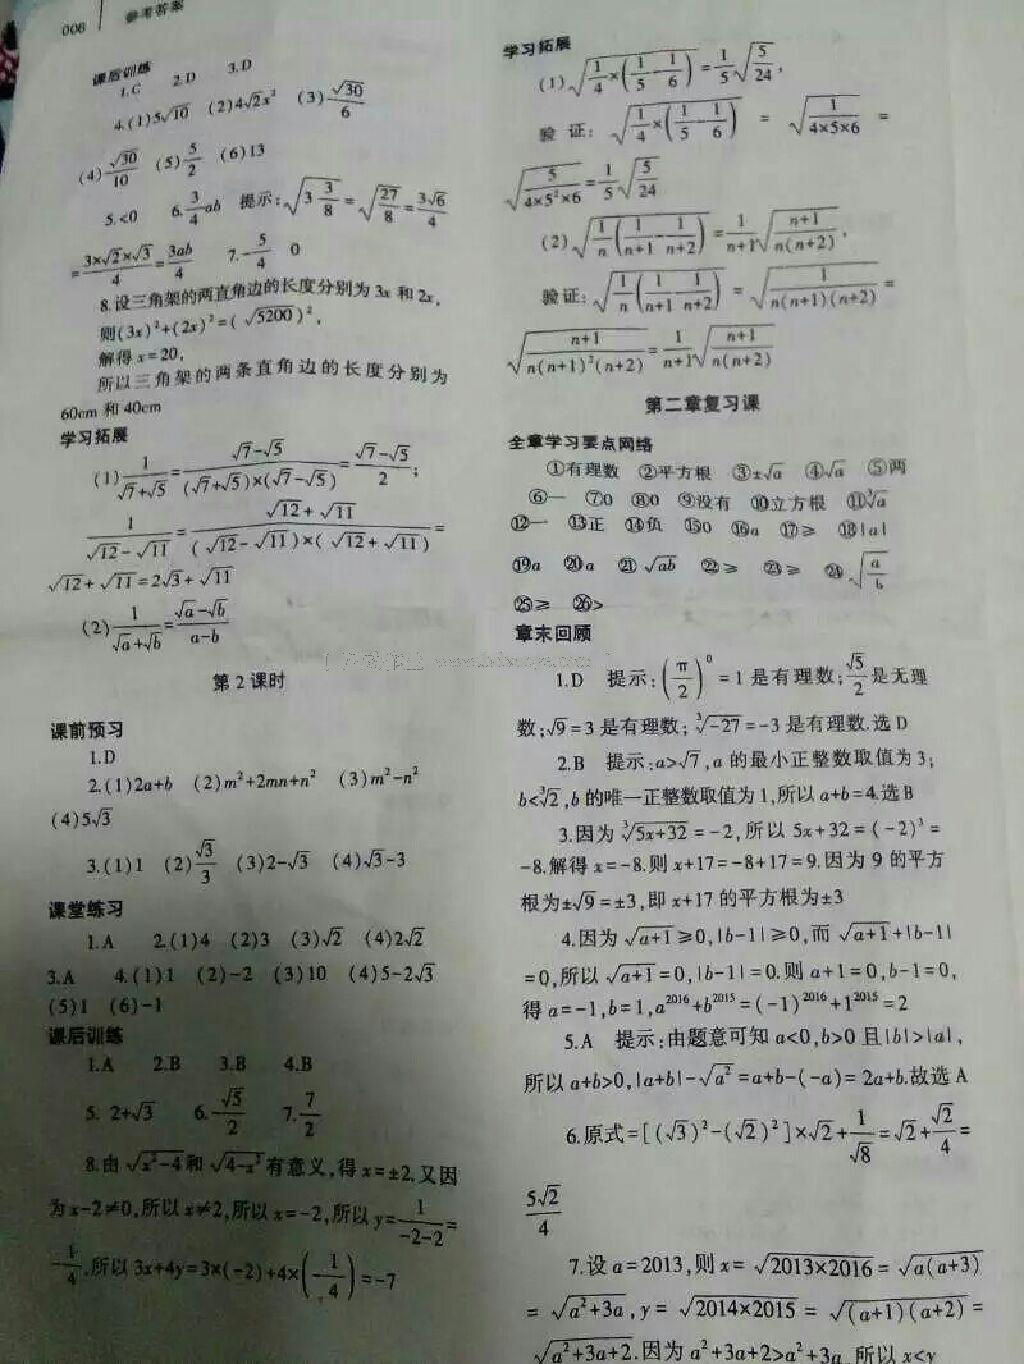 008 参考答案
课后训练
1.C 2.D 3.D
4.(1)5√10 (2)4√2x² (3)√30/6
(4)√30/10 (5)5/2 (6)13
5.<0 6.3/4ab 提示:√(3 3/8)=√(27/8)=3√6/4
=3×√2×√3/4=3ab/4 7.-5/4 0
8.设三角架的两直角边的长度分别为3x和2x,
则(3x)²+(2x)²=(√5200)²,
解得x=20,
所以三角架的两条直角边的长度分别为
60cm和40cm
学习拓展
(1)1/(√7+√5)=(√7-√5)/((√7+√5)×(√7-√5))=(√7-√5)/2;
1/(√12-√11)=(√12+√11)/((√12-√11)×(√12+√11))=
√12+√11=2√3+√11
(2)1/(√a+√b)=(√a-√b)/(a-b)
第2课时
课前预习
1.D
2.(1)2a+b (2)m²+2mn+n² (3)m²-n²
(4)5√3
3.(1)1 (2)√3/3 (3)2-√3 (4)√3-3
课堂练习
1.A 2.(1)4 (2)3 (3)√2 (4)2√2
3.A 4.(1)1 (2)-2 (3)10 (4)5-2√3
(5)1 (6)-1
课后训练
1.A 2.B 3.B 4.B
5. 2+√3 6.-√5/2 7.7/2
8.由√(x²-4)和√(4-x²)有意义,得x=±2.又因
为x-2≠0,所以x≠2,所以x=-2,所以y=1/(-2-2)=
-1/4.所以3x+4y=3×(-2)+4×(-1/4)=-7
学习拓展
(1)√(1/4×(1/5-1/6))=1/5√(5/24),
验证:√(1/4×(1/5-1/6))=√(1/(4×5×6))=
√(5/(4×5²×6))=1/5√(5/24)
(2)√(1/n(1/(n+1)-1/(n+2)))=1/(n+1)√((n+1)/(n(n+2))),
验证:√(1/n(1/(n+1)-1/(n+2)))=√(1/(n(n+1)(n+2)))=
√((n+1)/(n(n+1)²(n+2)))=1/(n+1)√((n+1)/(n(n+2)))
第二章复习课
全章学习要点网络
①有理数 ②平方根 ③±√a ④√a ⑤两
⑥一 ⑦0 ⑧0 ⑨没有 ⑩立方根 ⑪∛a
⑫一 ⑬正 ⑭负 ⑮0 ⑯a ⑰≥ ⑱|a|
⑲a ⑳a ㉑√ab ㉒≥ ㉓≥ ㉔√(a/b)
㉕≥ ㉖>
章末回顾
1.D 提示:(π/2)⁰=1是有理数;√5/2是无理
数;√9=3是有理数;∛-27=-3是有理数.选D
2.B 提示:a>√7,a的最小正整数取值为3;
b<∛2,b的唯一正整数取值为1,所以a+b=4.选B
3.因为∛(5x+32)=-2,所以5x+32=(-2)³=
-8.解得x=-8.则x+17=-8+17=9.因为9的平方
根为±√9=±3,即x+17的平方根为±3
4.因为√(a+1)≥0,|b-1|≥0,而√(a+1)+|b-1|
=0,所以√(a+1)=0,|b-1|=0.则a+1=0,b-1=0,
得a=-1,b=1,a²⁰¹⁶+b²⁰¹⁵=(-1)²⁰¹⁶+1²⁰¹⁵=2
5.A 提示:由题意可知a<0,b>0且|b|>|a|,
所以a+b>0,|a+b|-√a²=a+b-(-a)=2a+b.故选A
6.原式=[(√3)²-(√2)²]×√2+1/√8=√2+√2/4=
5√2/4
7.设a=2013,则x=√(2013×2016)=√(a(a+3))
=√(a²+3a),y=√(2014×2015)=√((a+1)(a+2))=
√(a²+3a+2).因为a²+3a+2>a²+3a,所以x<y